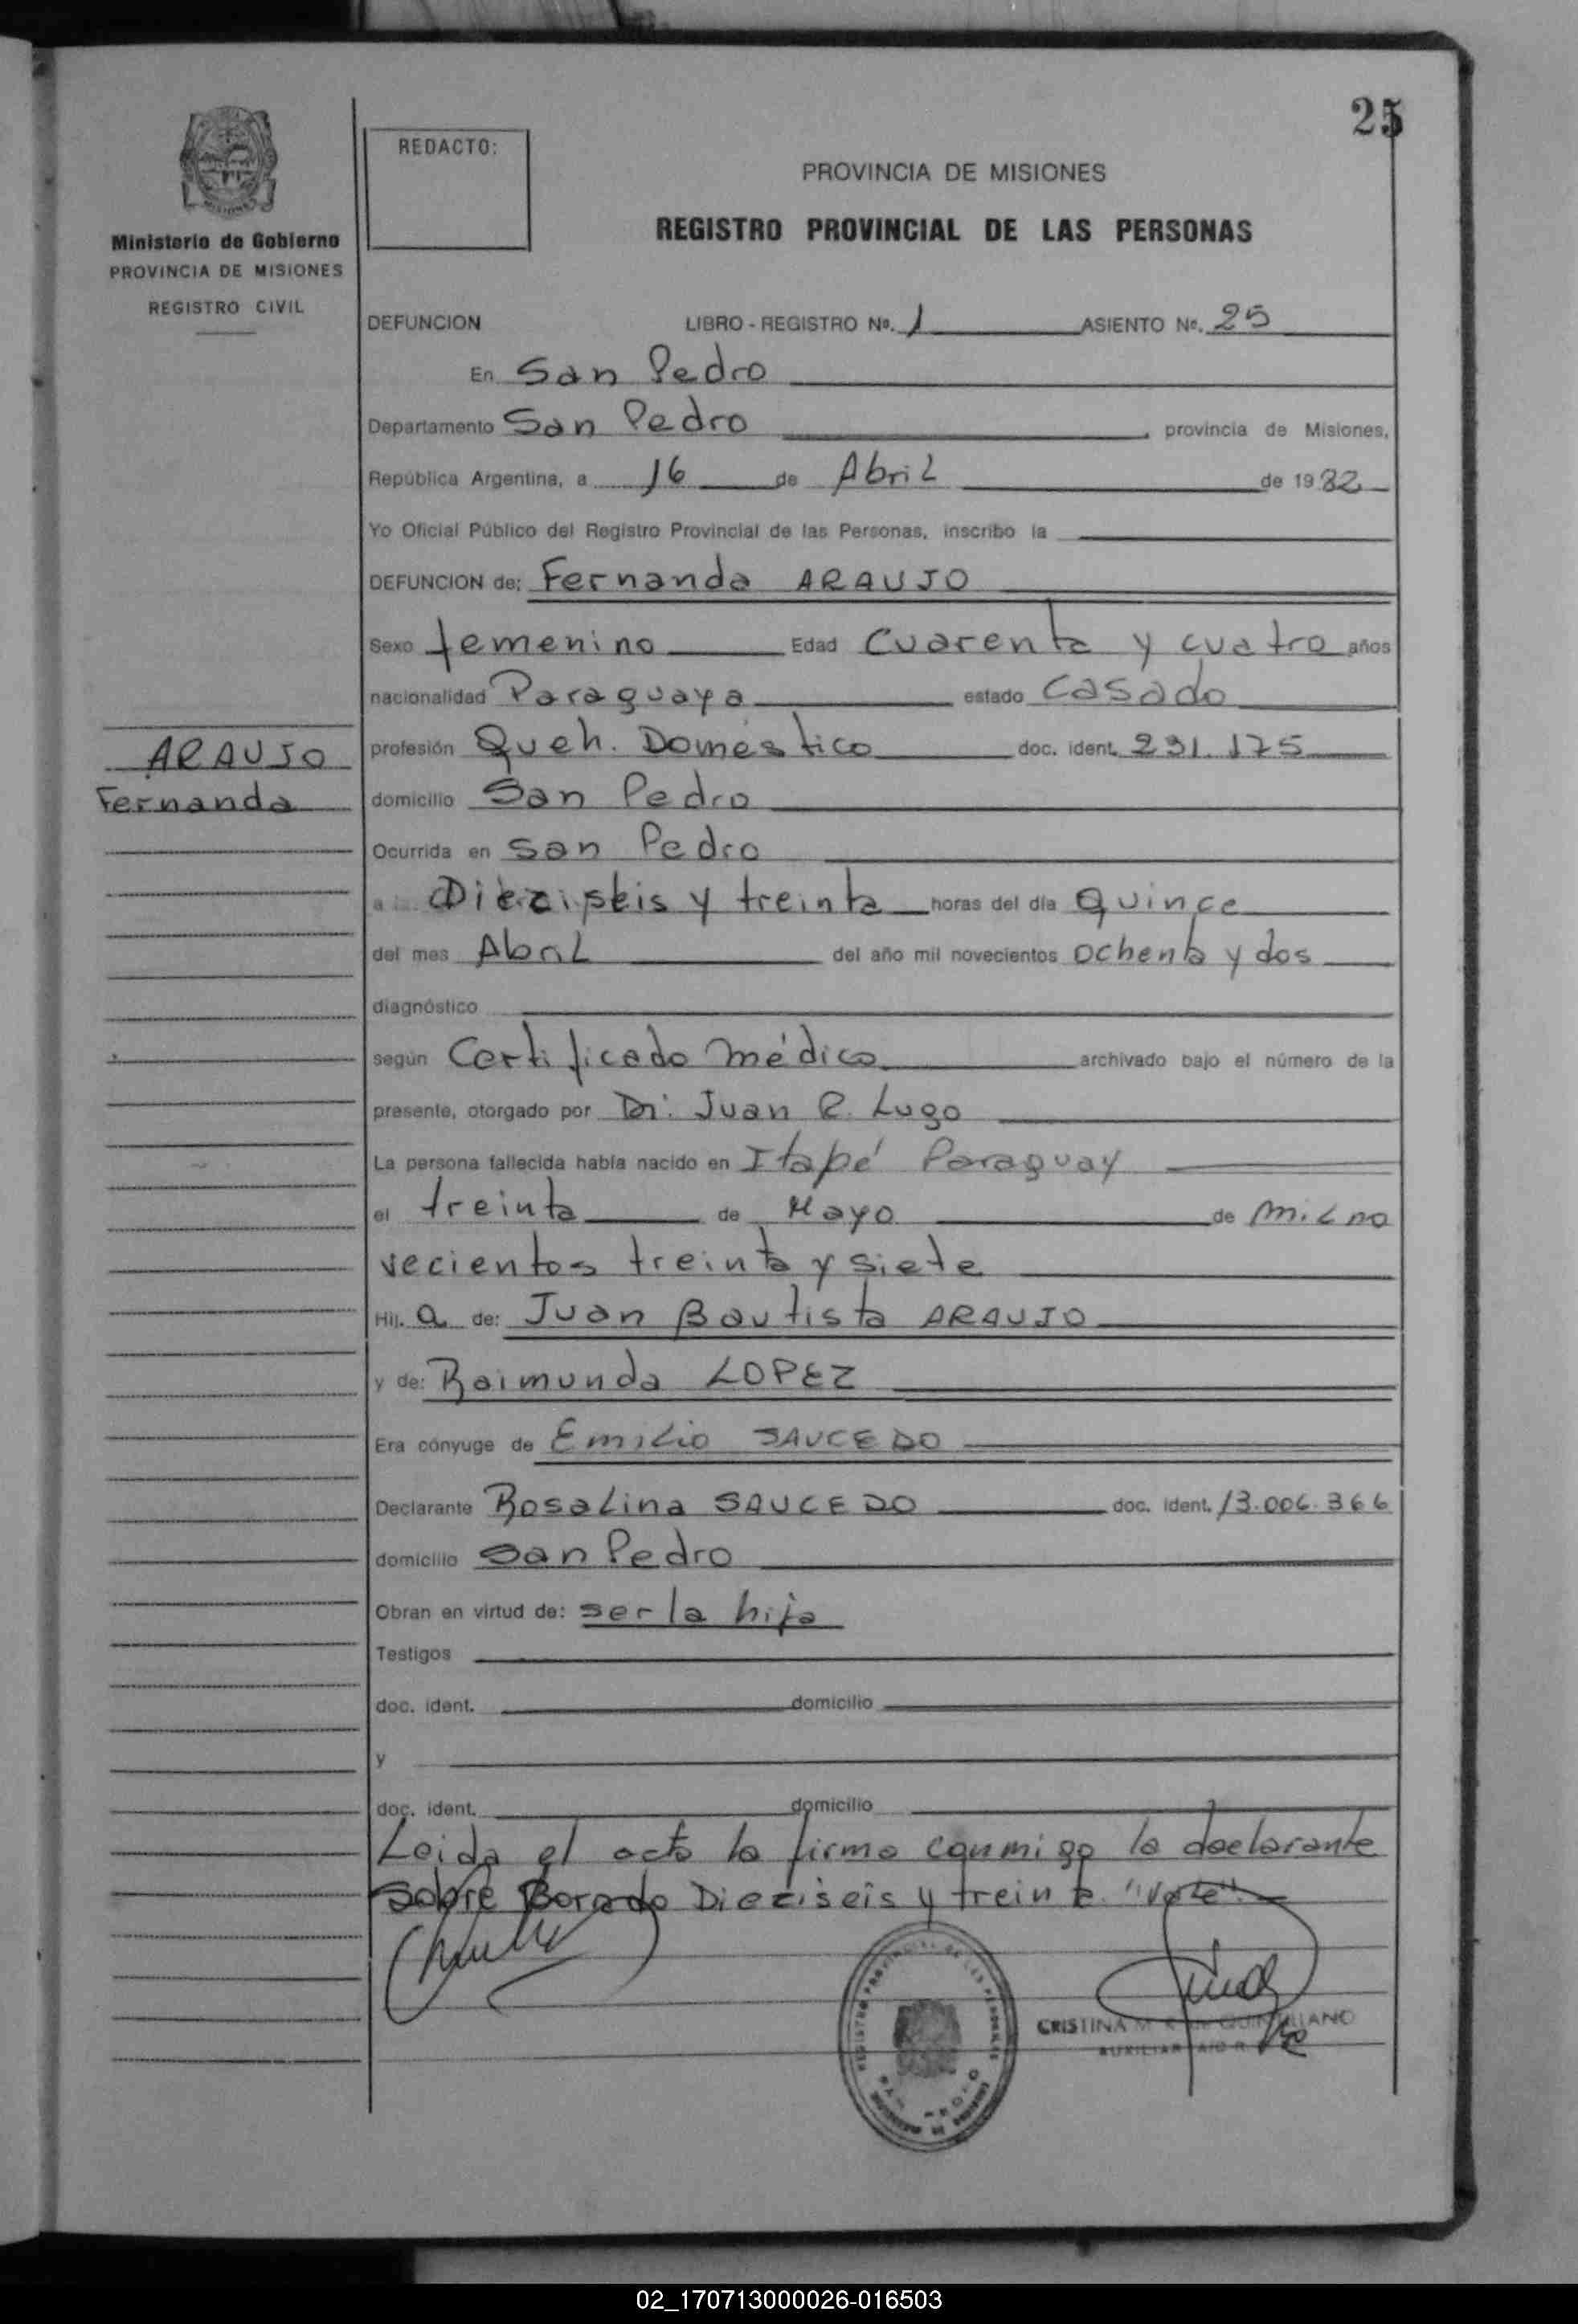 25
REDACTO:
PROVINCIA DE MISIONES
REGISTRO PROVINCIAL DE LAS PERSONAS
Ministerio de Gobierno
PROVINCIA DE MISIONES
REGISTRO CIVIL
DEFUNCION LIBRO - REGISTRO Nº. 1 ASIENTO Nº. 25
En San Pedro
Departamento San Pedro, provincia de Misiones,
República Argentina, a 16 de Abril de 1982
Yo Oficial Público del Registro Provincial de las Personas, inscribo la
DEFUNCION de: Fernanda ARAUJO
Sexo femenino Edad Cuarenta y cuatro años
nacionalidad Paraguaya estado Casado
ARAUJO
Fernanda
profesión Queh. Doméstico doc. ident. 231.175
domicilio San Pedro
Ocurrida en San Pedro
a Dieziseis y treinta horas del día Quince
del mes Abril del año mil novecientos ochenta y dos
diagnóstico
según Certificado médico archivado bajo el número de la
presente, otorgado por Dr. Juan R. Lugo
La persona fallecida había nacido en Itapé Paraguay
el treinta de Mayo de mil no
vecientos treinta y siete
Hij. a de: Juan Bautista ARAUJO
y de: Raimunda LOPEZ
Era cónyuge de Emilio SAUCEDO
Declarante Rosalina SAUCEDO doc. ident. 13.006.366
domicilio San Pedro
Obran en virtud de: ser la hija
Testigos
doc. ident. domicilio
y
doc. ident. domicilio
Leida el acta la firma conmigo la declarante
Sobre Borado Dieziseis y treinta "vale".
CRISTINA M. QUINTILIANO
AUXILIAR
02_170713000026-016503